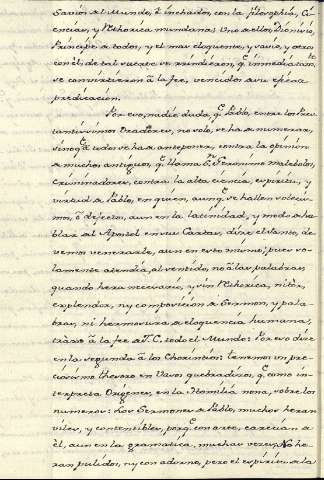 Savios del Mundo, è hinchados, con la Filosophia, Ci-
encias, y Rethorica mundana: Uno de ellos, Dionisio,
Principe de todos, y el mas eloquente, y savio, y otros
con èl, de tal suerte se rindieron, q.e immediatam.te
se convirtieron à la fee, vencidos de su eficaz
predicacion.
Por eso, nadie duda, q.e Pablo, entre los Pres-
tantissimos Oradores, no solo, se ha de numerar,
sino q.e à todos se ha de anteponer, contra la opinion
de muchos antiguos, q.e llama S.n Geronimo malebolos,
criminadores, contra la alta ciencia, espiritu, y
virtud de Pablo, en quien, aunq.e se hallen solecis-
mos, ò defectos, aun en la latinidad, y modo de ha-
blar del Apostol en sus Cartas, dice el Santo, de-
vemos venerarle, aun en esto mismo; pues so-
lamente atendia, al sentido, no à las palabras,
quando hera necesario, y sin Rethorica, nitor,
explendor, ny composicion de Sermon, y pala-
bras, ni hermosura de eloquencia humana,
traxo à la fee de J. C. todo el Mundo: Por eso dice
en la segunda à los Chorintios: tenemos un pre-
ciosissimo thesoro en Vasos quebradizos, q.e como in-
terpreta Origenes, en la Homilia nona, sobre los
numeros: los Sermones de Pablo, muchos heran
viles, y contentibles, porq.e con arte, carecian de
èl, aun en la gramatica, muchas veces, No he-
ran pulidos, ny con adorno, pero el espiritu de la